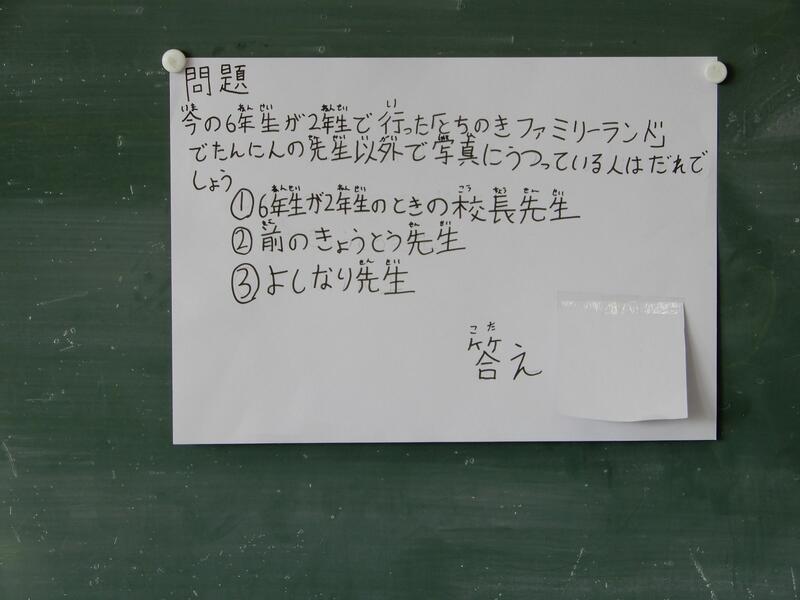 問題
今の6年生が2年生で行った「とちのきファミリーランド」
でたんにんの先生以外で写真にうつっている人はだれで
しょう
①6年生が2年生のときの校長先生
②前のきょうとう先生
③よしなり先生
答え